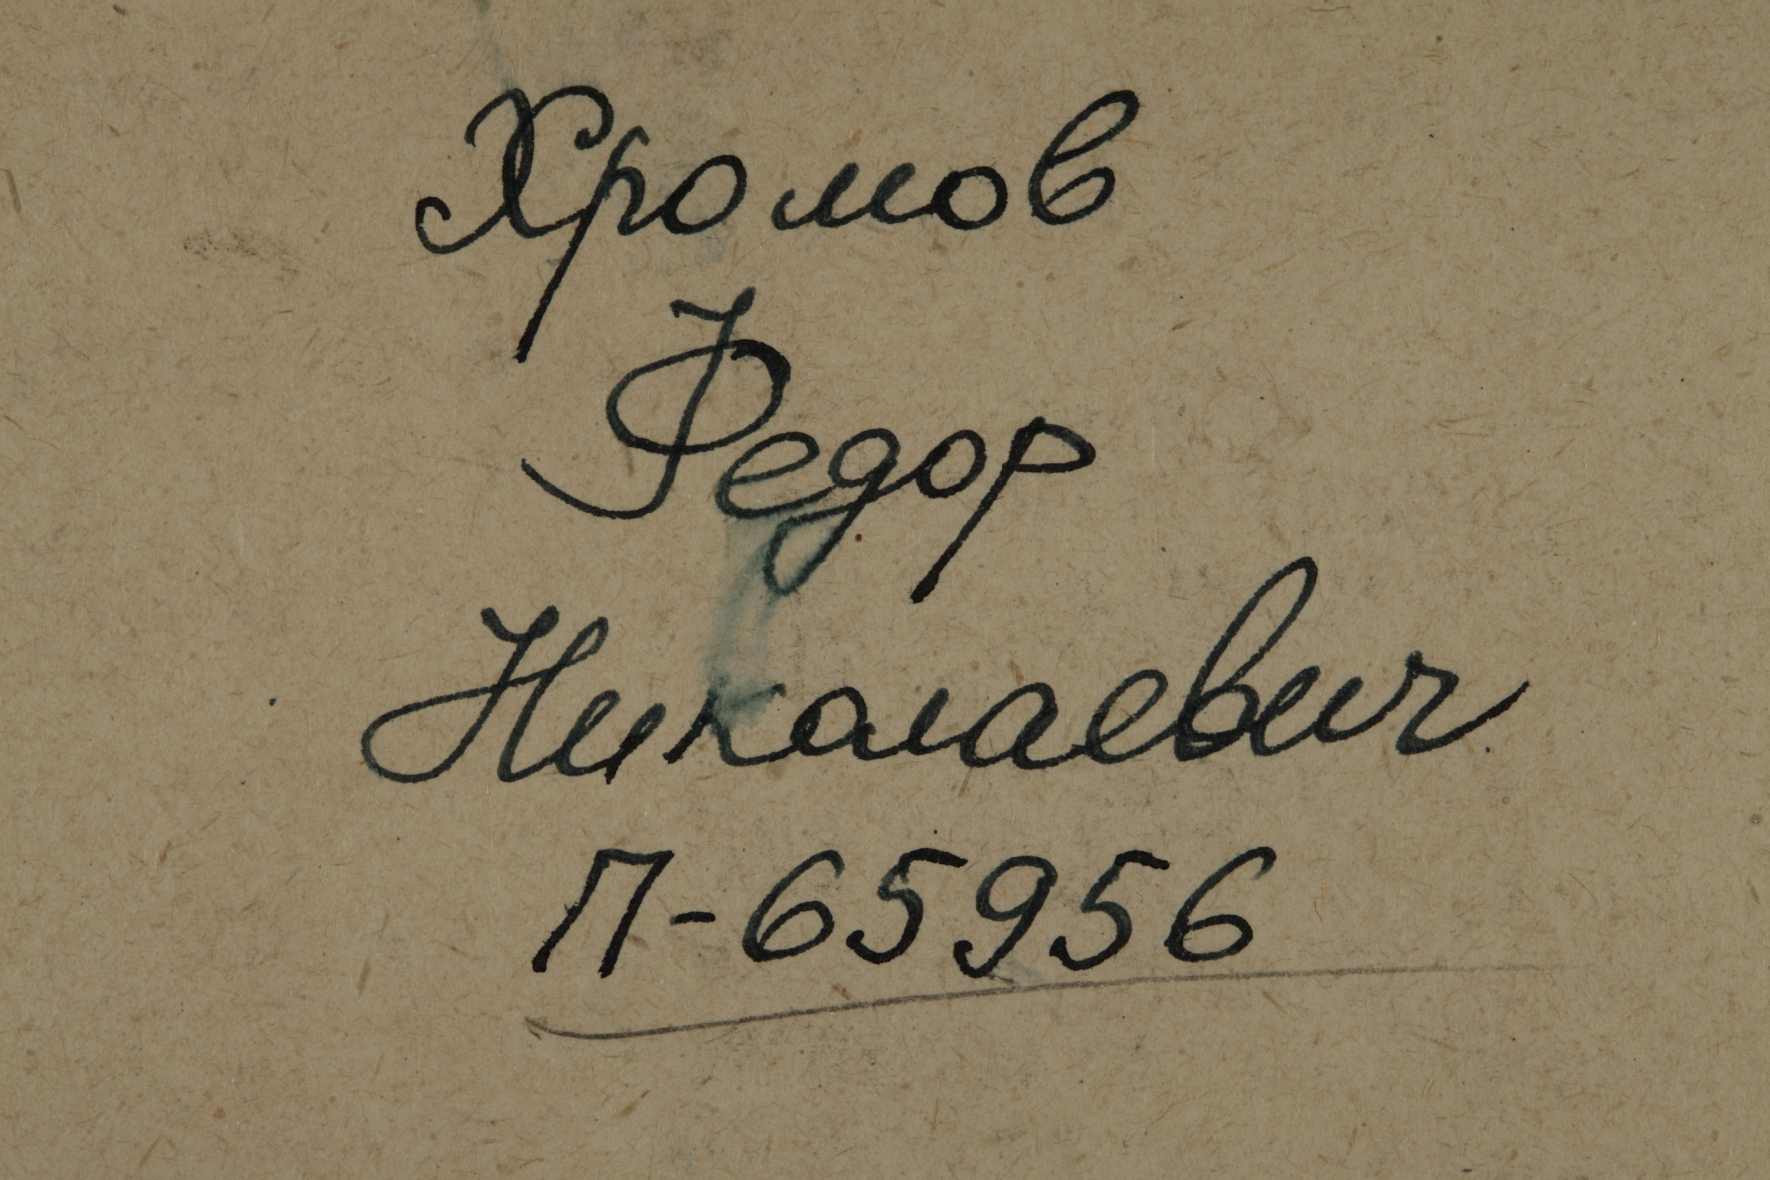 Хромов
Федор
Николаевич
П-65956